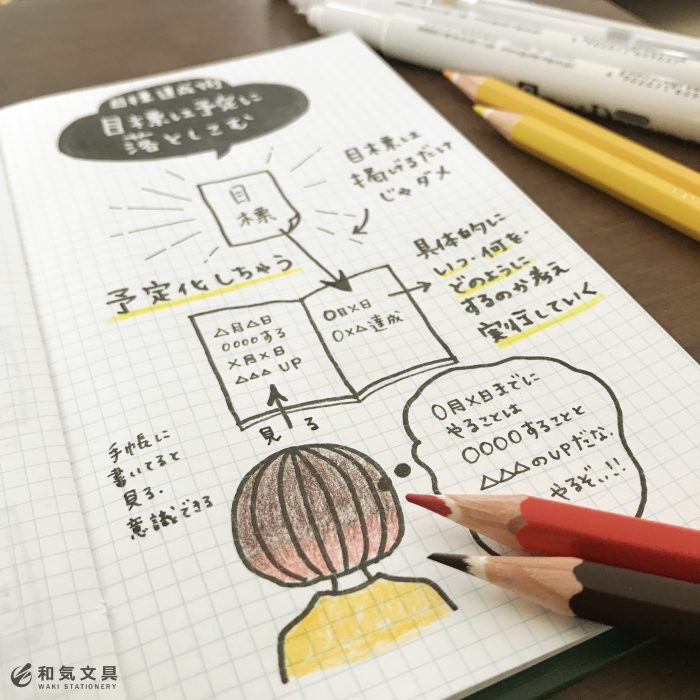 目標達成術
目標は予定に
落としこむ
目標は
掲げるだけ
じゃダメ
目
標
予定化しちゃう
具体的に
いつ・何を・
どのように
するのか考え
実行していく
△月△日
○○○○する
×月×日
△△△UP
○月×日
○×△達成
見る
手帳に
書いてると
見る、
意識できる
○月×日までに
やることは
○○○○することと
△△△のUPだな、
やるぞぃ!!
和気文具
WAKI STATIONERY